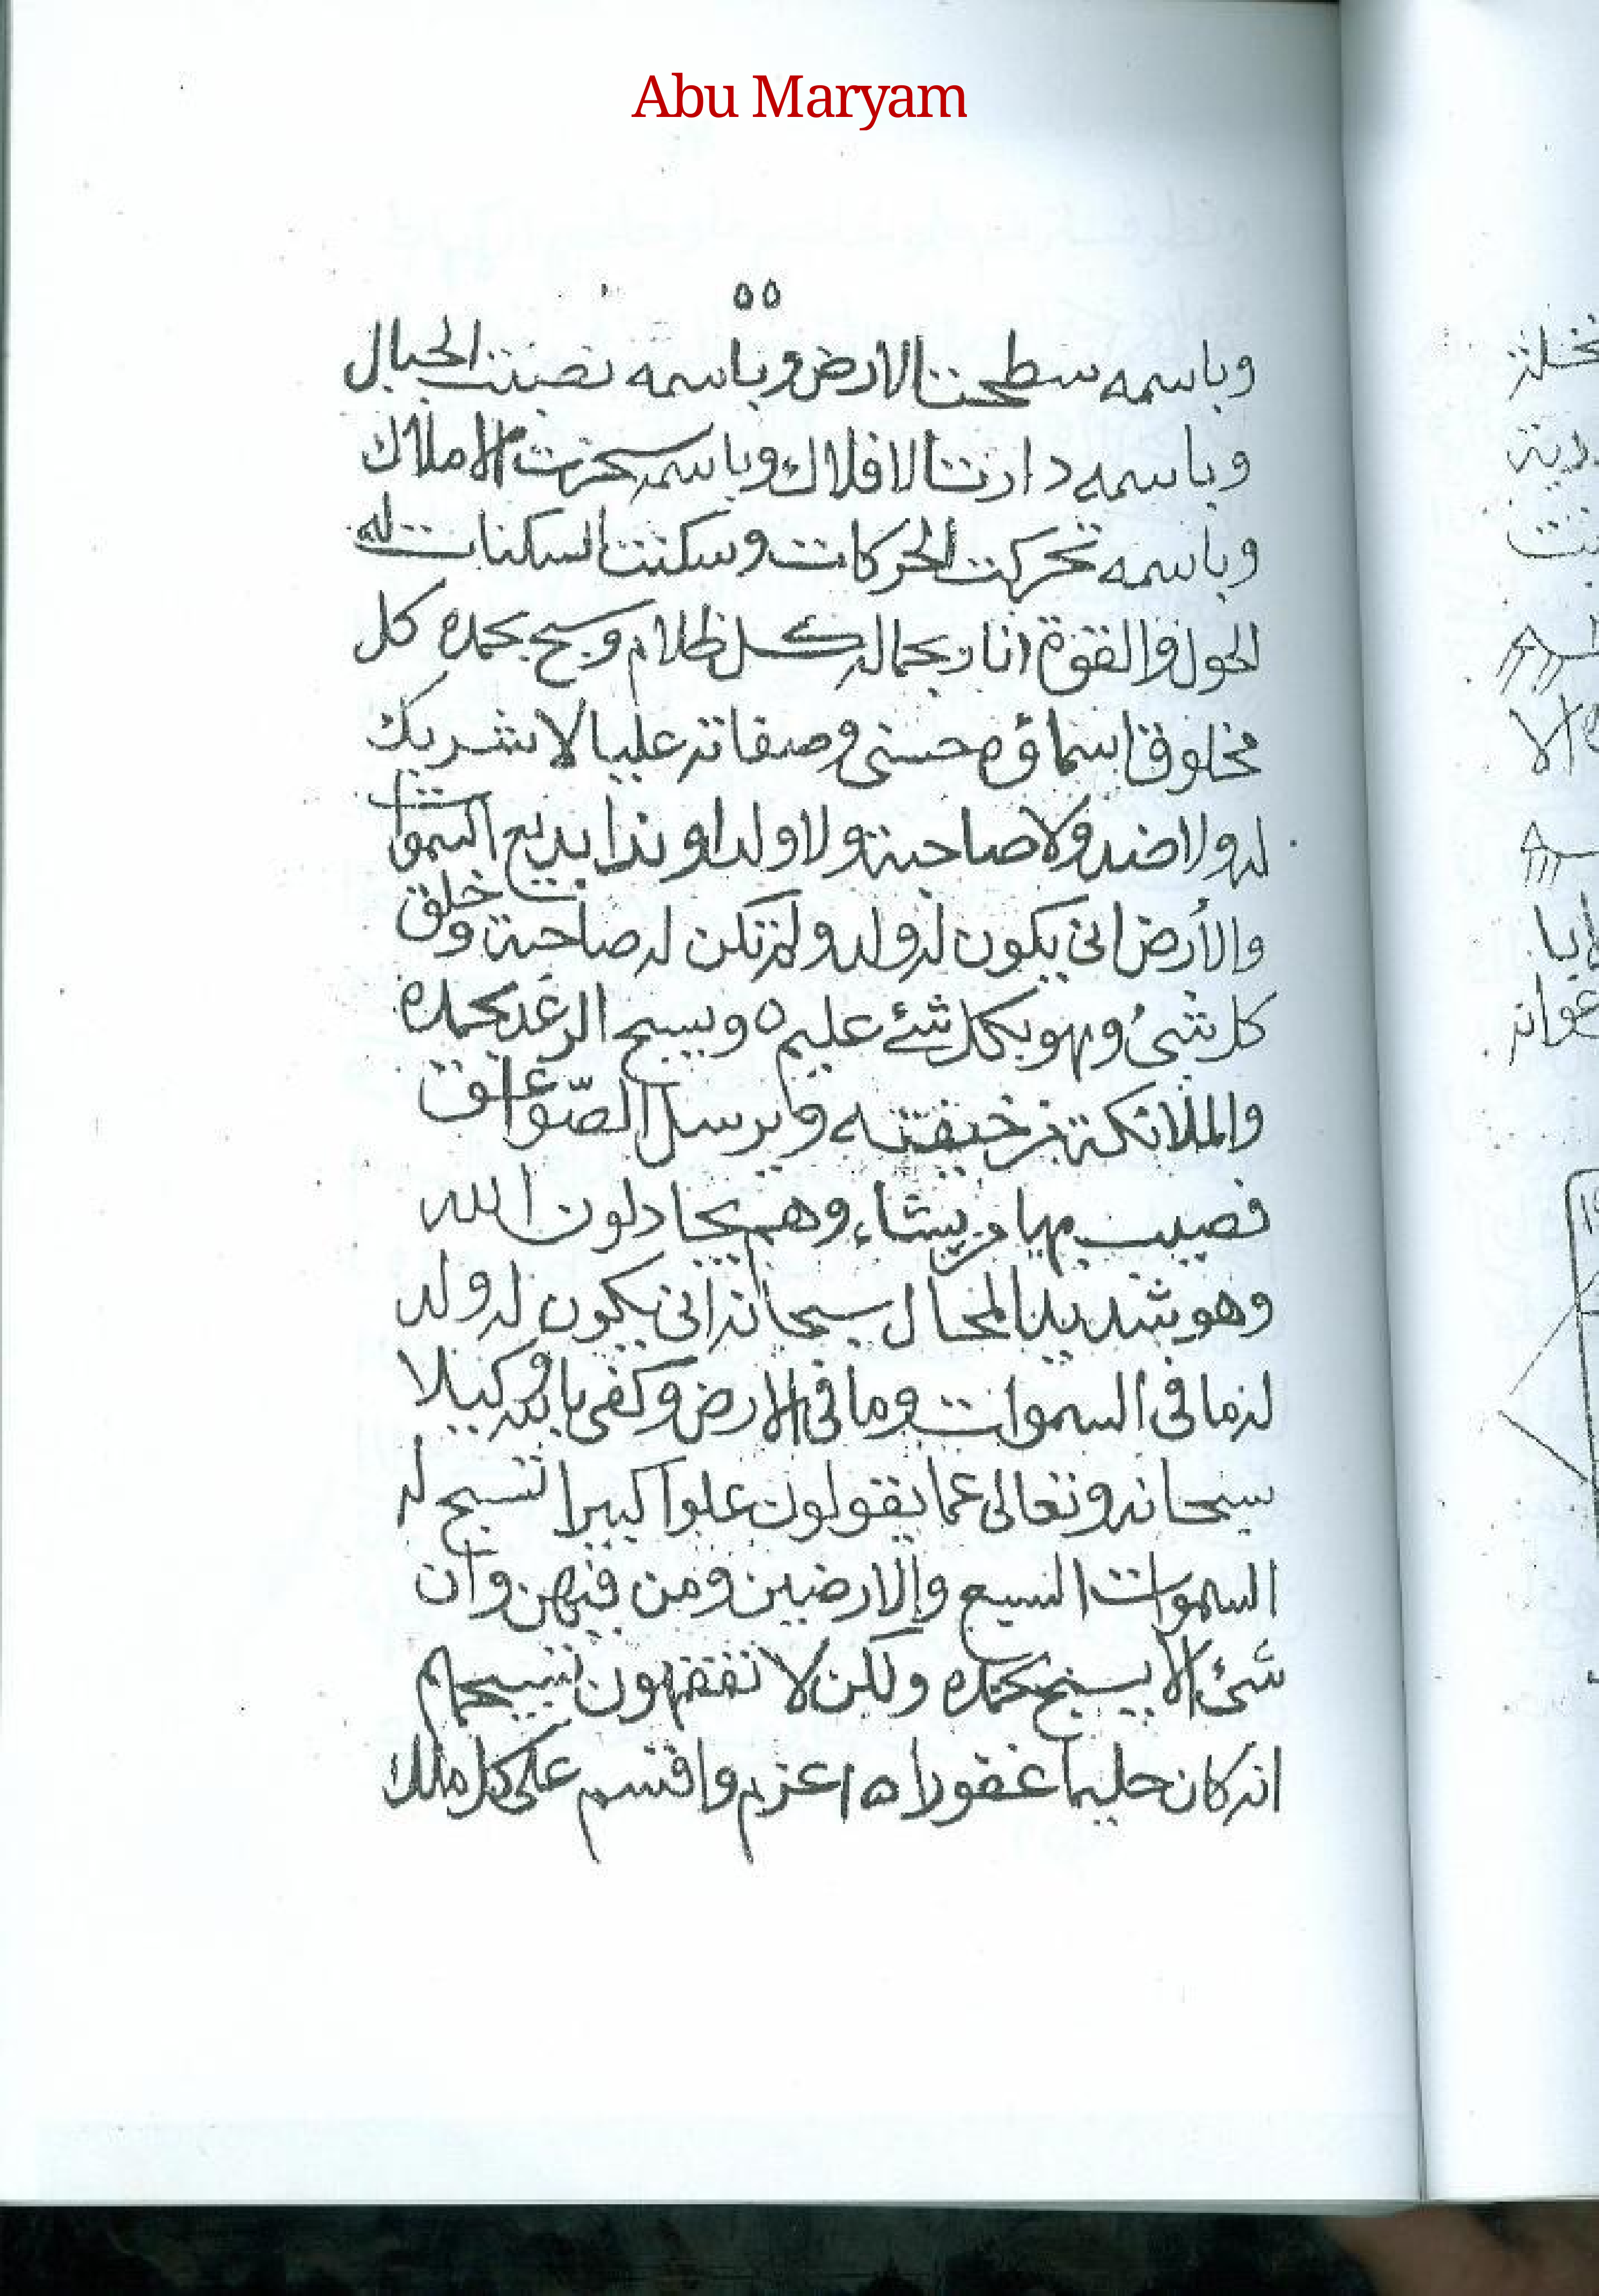 Abu Maryam
٥٥
وباسمه سطحت الارض وباسمه نصبت الجبال
وباسمه دارت الافلاك وباسمه سخرت الاملاك
وباسمه تحركت الحركات وسكنت السكنات له
الحول والقوة انار بجماله كل ظلام وسبح بحمده كل
مخلوق اسماؤه حسنى وصفاته عليا لا شريك
له ولا ضد ولا صاحبة ولا ولدا وندا بديع السموات
والأرض انى يكون له ولد ولم تكن له صاحبة وخلق
كل شئ وهو بكل شئ عليم ٥ ويسبح الرعد بحمده
والملائكة من خيفته ويرسل الصّواعق
فصيب بها من يشاء وهم يجادلون الله
وهو شديد المحال سبحانه انى يكون له ولد
له ما فى السموات وما فى الارض وكفى بالله وكيلا
سبحانه وتعالى عما يقولون علوا كبيرا تسبح له
السموات السبع والارضين ومن فيهن وان
شئ الا يسبح بحمده ولكن لا تفقهون تسبيحهم
انه كان حليما غفورا ٥ اعزم واقسم على كل ملك
نخلة